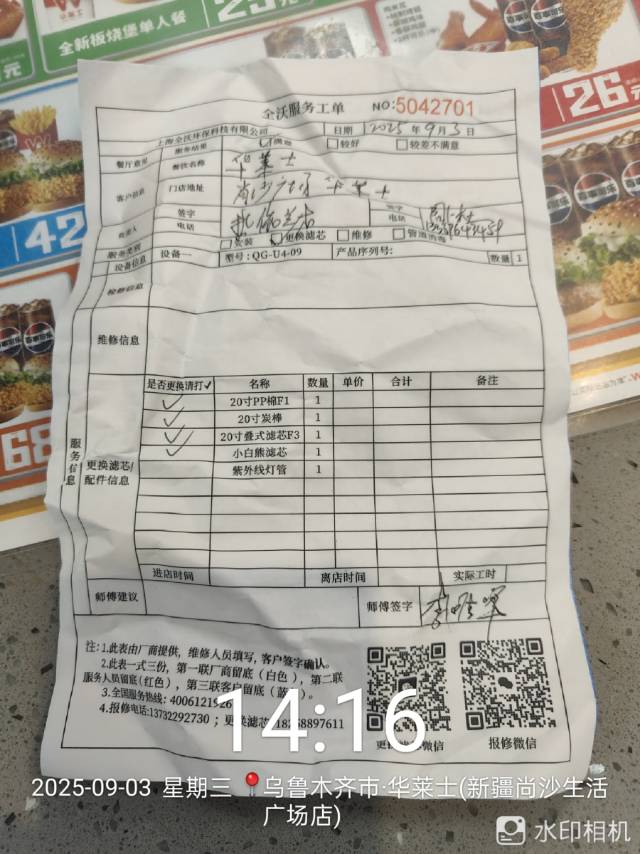 全新板烧堡单人餐
元
42
68
26元
全沃服务工单 NO:5042701
上海全沃环保科技有限公司 日期 2025年9月3日
服务结果 较好 较差不满意
餐厅意见 餐饮名称 华莱士
客户信息 门店地址
签字 签字
负责人 电话 电话
服务类别 安装 更换滤芯 维修 管道消毒
设备信息 设备一 型号:QG-U4-09 产品序列号: 数量 1
检修信息
维修信息
是否更换请打✓ 名称 数量 单价 合计 备注
✓ 20寸PP棉F1 1
✓ 20寸炭棒 1
✓ 20寸叠式滤芯F3 1
✓ 小白熊滤芯 1
紫外线灯管 1
服务信息
更换滤芯/
配件信息
进店时间 离店时间 实际工时
师傅建议 师傅签字
注:1.此表由厂商提供,维修人员填写,客户签字确认。
2.此表一式三份,第一联厂商留底(白色),第二联
服务人员留底(红色),第三联客户留底(蓝
3.全国服务热线:4006121926
4.报修电话:13732292730;更换滤芯 18258897611
报修微信
14:16
2025-09-03 星期三 乌鲁木齐市·华莱士(新疆尚沙生活
广场店)
水印相机